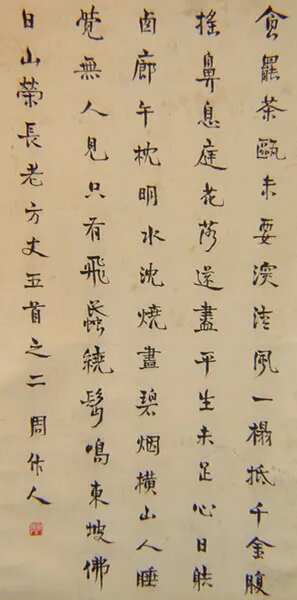 食罷茶甌未要深清風一榻抵千金腹
搖鼻息庭花落還盡平生未足心日
囬廊午枕明水沈燒盡碧烟橫山人睡
覺無人見只有飛繞鬢鳴東坡佛
日山榮長老方丈五首之二 周作人